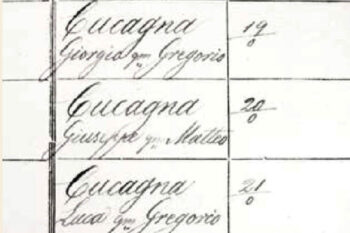 Cucagna 19
Giorgio qm Gregorio 0
Cucagna 20
Giuseppe qm Matteo 0
Cucagna 21
Luca qm Gregorio 0